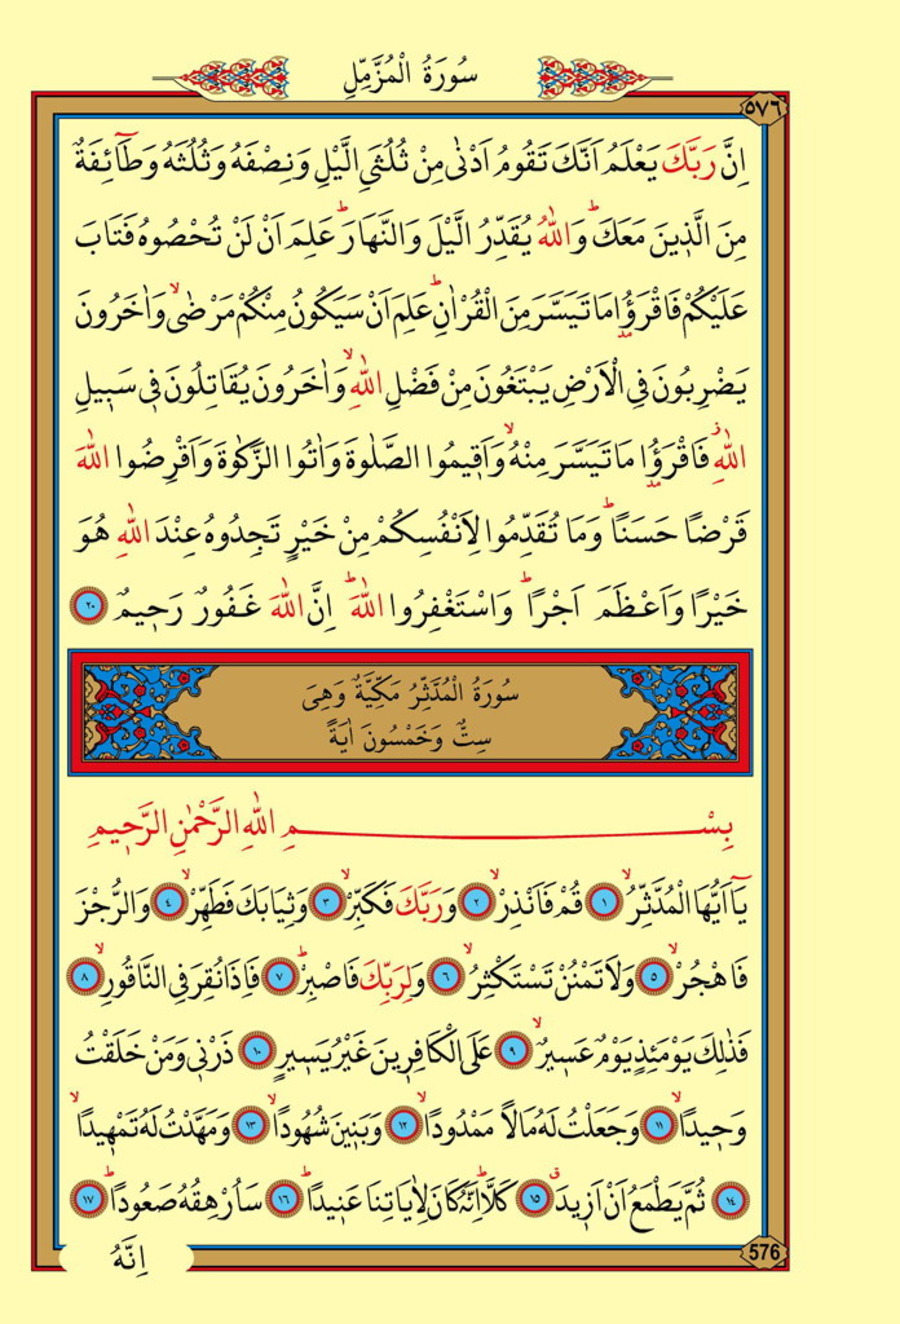 سُورَةُ الْمُزَّمِّلِ
٥٧٦
اِنَّ رَبَّكَ يَعْلَمُ اَنَّكَ تَقُومُ اَدْنٰى مِنْ ثُلُثَيِ الَّيْلِ وَنِصْفَهُ وَثُلُثَهُ وَطَٓائِفَةٌ
مِنَ الَّذِينَ مَعَكَۜ وَاللّٰهُ يُقَدِّرُ الَّيْلَ وَالنَّهَارَۜ عَلِمَ اَنْ لَنْ تُحْصُوهُ فَتَابَ
عَلَيْكُمْ فَاقْرَؤُ۫ا مَا تَيَسَّرَ مِنَ الْقُرْاٰنِۜ عَلِمَ اَنْ سَيَكُونُ مِنْكُمْ مَرْضٰىۙ وَاٰخَرُونَ
يَضْرِبُونَ فِي الْاَرْضِ يَبْتَغُونَ مِنْ فَضْلِ اللّٰهِۙ وَاٰخَرُونَ يُقَاتِلُونَ فِي سَبِيلِ
اللّٰهِۘ فَاقْرَؤُ۫ا مَا تَيَسَّرَ مِنْهُۙ وَاَقِيمُوا الصَّلٰوةَ وَاٰتُوا الزَّكٰوةَ وَاَقْرِضُوا اللّٰهَ
قَرْضًا حَسَنًاۜ وَمَا تُقَدِّمُوا لِاَنْفُسِكُمْ مِنْ خَيْرٍ تَجِدُوهُ عِنْدَ اللّٰهِ هُوَ
خَيْرًا وَاَعْظَمَ اَجْرًاۜ وَاسْتَغْفِرُوا اللّٰهَۜ اِنَّ اللّٰهَ غَفُورٌ رَحِيمٌ ٢٠
سُورَةُ الْمُدَّثِّرِ مَكِّيَّةٌ وَهِيَ
سِتٌّ وَخَمْسُونَ اٰيَةً
بِسْمِ اللّٰهِ الرَّحْمٰنِ الرَّحِيمِ
يَٓا اَيُّهَا الْمُدَّثِّرُۙ ١ قُمْ فَاَنْذِرْۙ ٢ وَرَبَّكَ فَكَبِّرْۙ ٣ وَثِيَابَكَ فَطَهِّرْۙ ٤ وَالرُّجْزَ
فَاهْجُرْۙ ٥ وَلَا تَمْنُنْ تَسْتَكْثِرُۙ ٦ وَلِرَبِّكَ فَاصْبِرْۜ ٧ فَاِذَا نُقِرَ فِي النَّاقُورِۙ ٨
فَذٰلِكَ يَوْمَئِذٍ يَوْمٌ عَسِيرٌۙ ٩ عَلَى الْكَافِرِينَ غَيْرُ يَسِيرٍ ١٠ ذَرْنِي وَمَنْ خَلَقْتُ
وَحِيدًاۙ ١١ وَجَعَلْتُ لَهُ مَالًا مَمْدُودًاۙ ١٢ وَبَنِينَ شُهُودًاۙ ١٣ وَمَهَّدْتُ لَهُ تَمْهِيدًاۙ
١٤ ثُمَّ يَطْمَعُ اَنْ اَزِيدَۗ ١٥ كَلَّاۜ اِنَّهُ كَانَ لِاٰيَاتِنَا عَنِيدًاۜ ١٦ سَاُرْهِقُهُ صَعُودًاۜ ١٧
576
اِنَّهُ